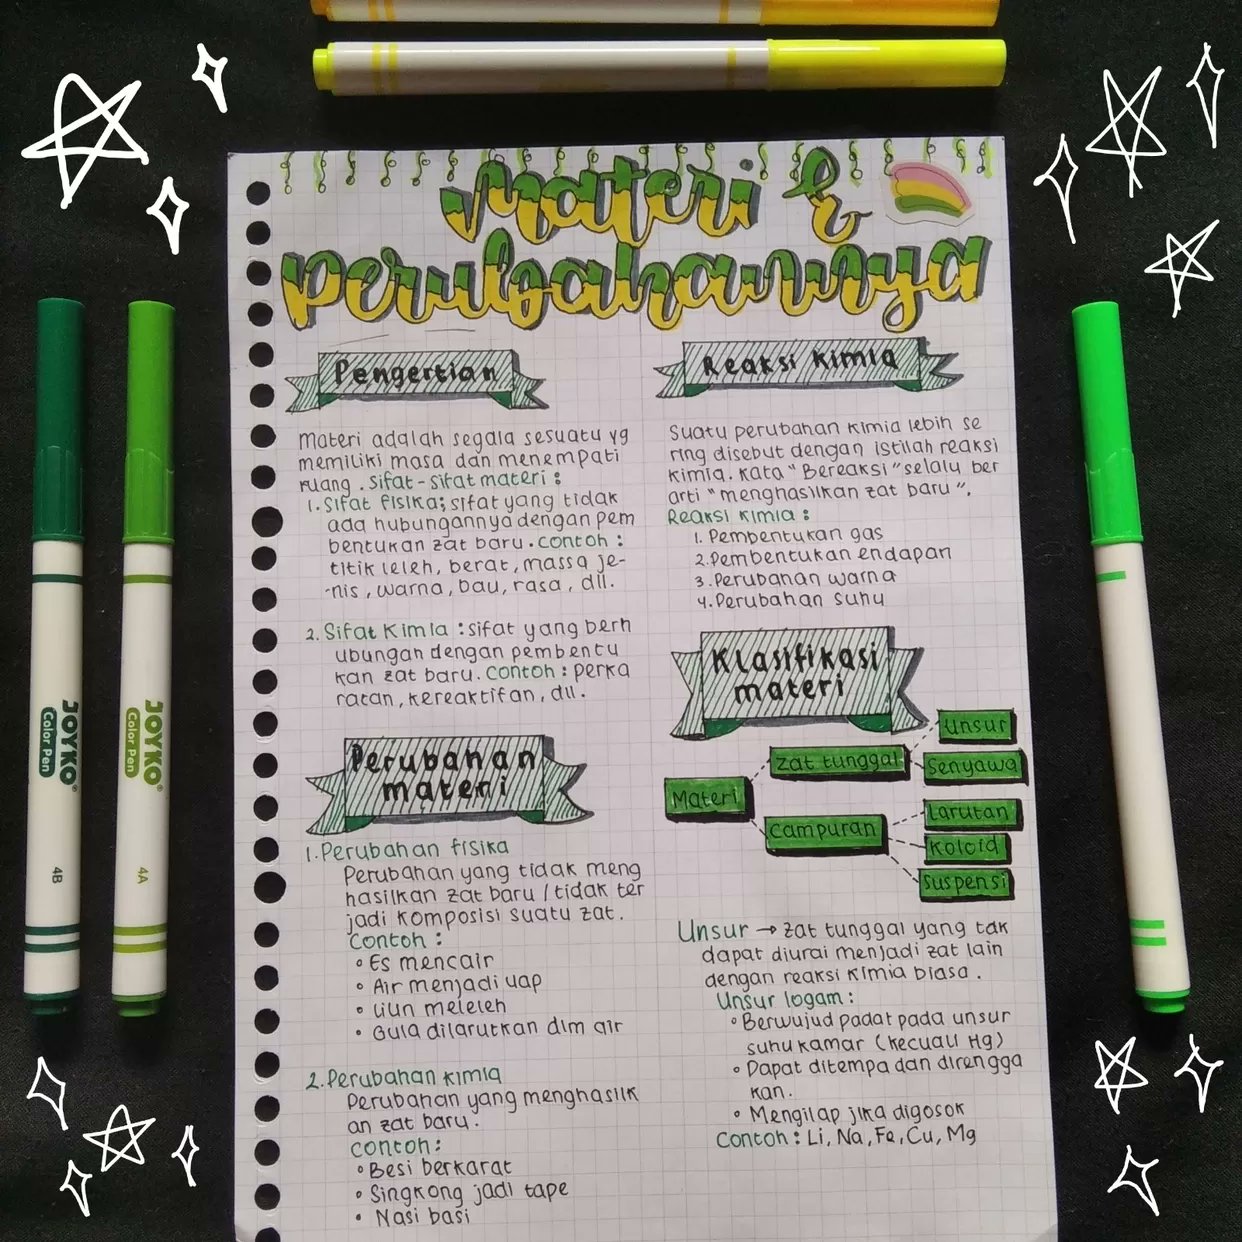 Materi &
perubahannya
Pengertian
Materi adalah segala sesuatu yg
memiliki masa dan menempati
ruang. Sifat-sifat materi:
1. Sifat fisika; sifat yang tidak
ada hubungannya dengan pem
bentukan zat baru. Contoh:
titik leleh, berat, massa je-
-nis, warna, bau, rasa, dll.
2. Sifat Kimia : sifat yang berh
ubungan dengan pembentu
kan zat baru. Contoh : perka
ratan, kereaktifan, dll.
Perubahan
materi
1. Perubahan fisika
Perubahan yang tidak meng
hasilkan zat baru / tidak ter
jadi komposisi suatu zat.
Contoh :
• Es mencair
• Air menjadi uap
• Lilin meleleh
• Gula dilarutkan dlm air
2. Perubahan kimia
Perubahan yang menghasilk
an zat baru.
Contoh:
• Besi berkarat
• Singkong jadi tape
• Nasi basi
Reaksi kimia
Suatu perubahan kimia lebih se
ring disebut dengan istilah reaksi
kimia. Kata "Bereaksi" selalu ber
arti "menghasilkan zat baru".
Reaksi kimia :
1. Pembentukan gas
2. Pembentukan endapan
3. Perubahan warna
4. Perubahan suhu
Klasifikasi
materi
Materi
zat tunggal
campuran
unsur
senyawa
larutan
koloid
suspensi
Unsur → zat tunggal yang tak
dapat diurai menjadi zat lain
dengan reaksi kimia biasa.
Unsur logam :
• Berwujud padat pada unsur
suhu kamar (kecuali Hg)
• Dapat ditempa dan direngga
kan.
• Mengilap jika digosok
Contoh : Li, Na, Fe, Cu, Mg
JOYKO
Color Pen
4B
JOYKO
Color Pen
4A